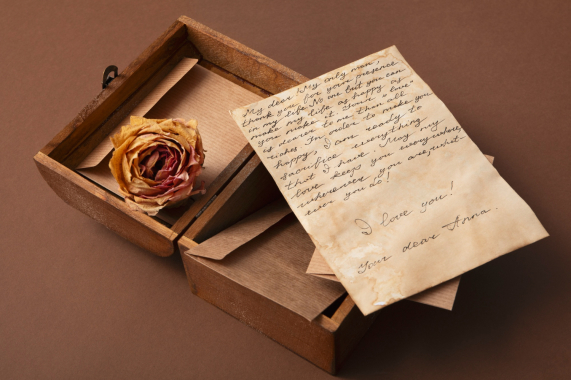 My dear, My only man,
thank you for your presence
in my life. No one but you can
make my life as happy as
you make it. Your "love"
is dearer to me then all
riches. In order to make you
happy I am ready to
sacrifice everything
that I have. May my
love keep you everywhere,
wherever you are,
ever you do!
I love you!
Your dear Anna.